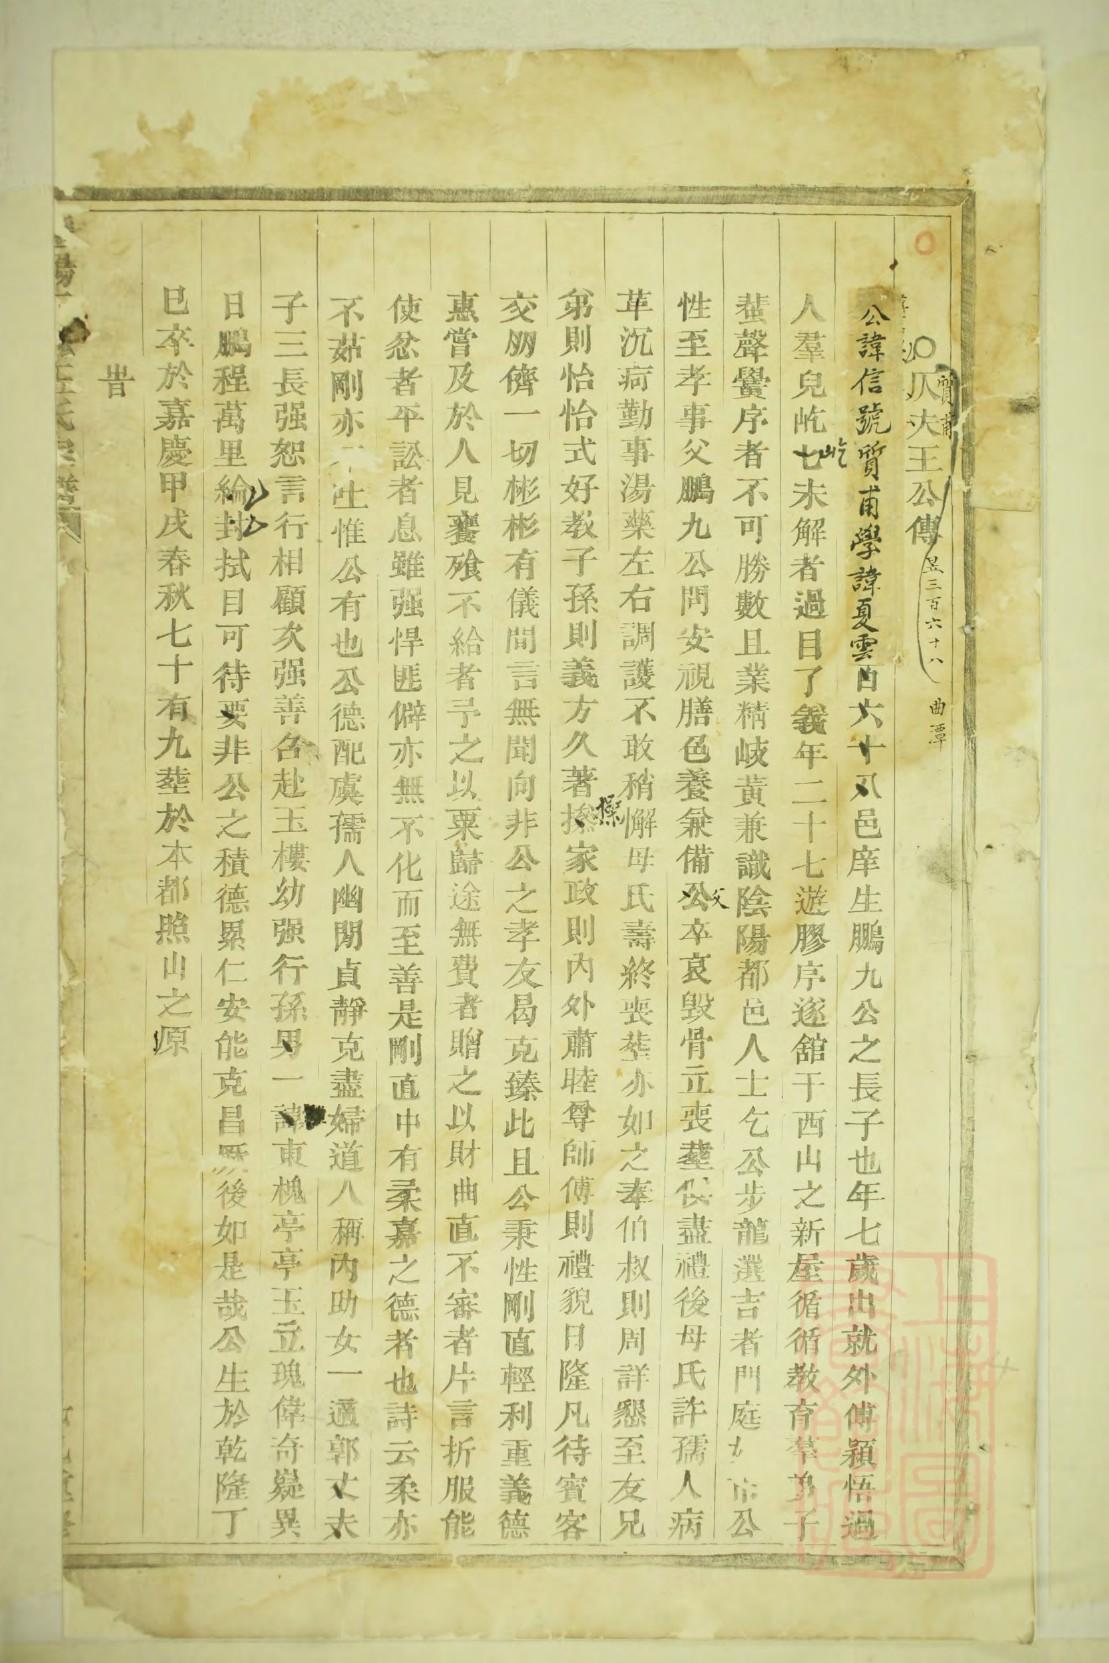 質甫
仄夫王公傳 昱三百六十八 曲潭
公諱信號質甫學諱夏雲百六十八邑庠生鵬九公之長子也年七歲出就外傅穎悟過
人羣兒屹屹未解者過目了義年二十七遊膠序遂舘于西山之新屋循循教育羣弟子
蜚聲黌序者不可勝數且業精岐黃兼識陰陽都邑人士乞公步龍選吉者門庭 公
性至孝事父鵬九公問安視膳色養兼備父卒哀毀骨立喪塟 盡禮後母氏許孺人病
革沉疴勤事湯藥左右調護不敢稍懈母氏壽終喪塟亦如之奉伯叔則周詳懇至友兄
弟則怡怡式好教子孫則義方久著操家政則內外肅睦尊師傅則禮貌日隆凡待賓客
交朋儕一切彬彬有儀間言無聞向非公之孝友曷克臻此且公秉性剛直輕利重義德
惠嘗及於人見饔飧不給者予之以粟歸途無費者贈之以財曲直不審者片言折服能
使忿者平訟者息雖强悍匪僻亦無不化而至善是剛直中有柔嘉之德者也詩云柔亦
不茹剛亦不吐惟公有也公德配虞孺人幽閒貞靜克盡婦道人稱內助女一適郭丈夫
子三長强恕言行相顧次强善名赴玉樓幼强行孫男一諱東槐亭亭玉立瑰偉奇嶷異
日鵬程萬里綸封拭目可待要非公之積德累仁安能克昌厥後如是哉公生於乾隆丁
巳卒於嘉慶甲戌春秋七十有九塟於本都照山之原
旹